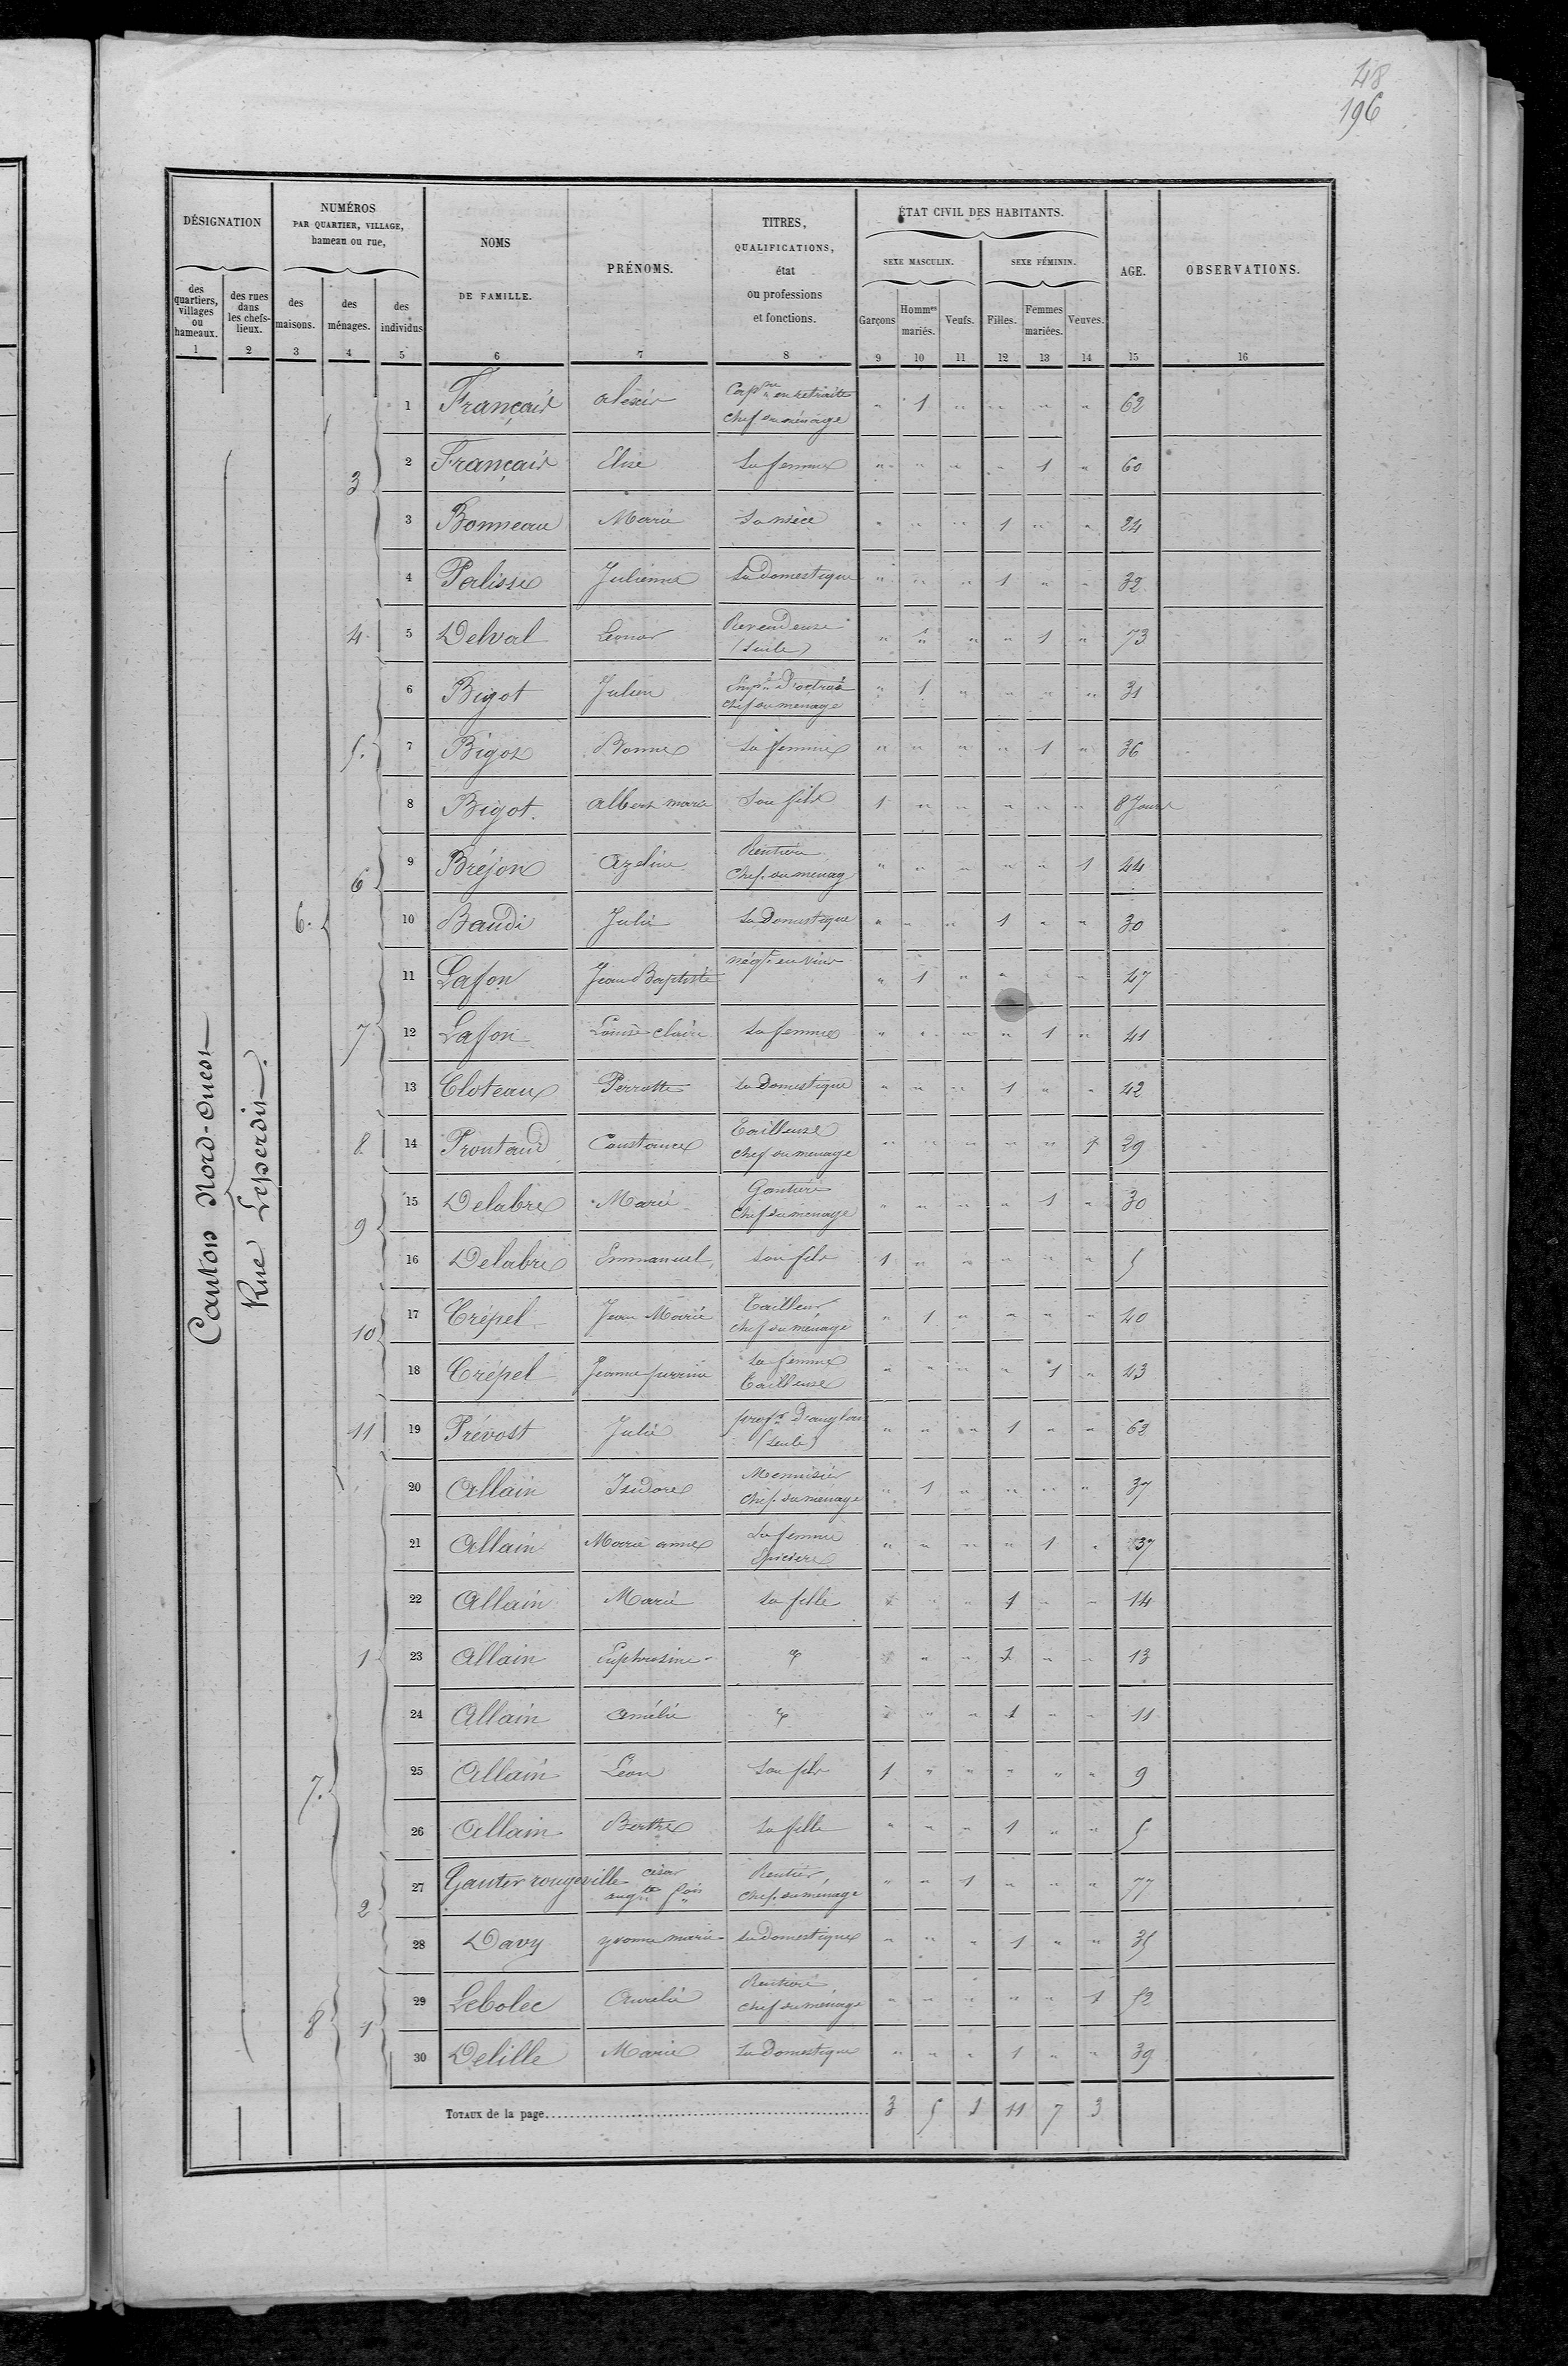 48
196
DÉSIGNATION
NUMÉROS
PAR QUARTIER, VILLAGE,
hameau ou rue,
NOMS
DE FAMILLE.
PRÉNOMS.
TITRES,
QUALIFICATIONS,
état
ou professions
et fonctions.
ÉTAT CIVIL DES HABITANTS.
SEXE MASCULIN.
SEXE FÉMININ.
AGE.
OBSERVATIONS.
des quartiers, villages ou hameaux.
des rues dans les chefs-lieux.
des maisons.
des ménages.
des individus
Garçons
Hommes mariés.
Veufs.
Filles.
Femmes mariées.
Veuves.
1 2 3 4 5 6 7 8 9 10 11 12 13 14 15 16
Canton Nord-Ouest
Rue Leperdit
1 Français alexis Capne en retraite chef du ménage " 1 " " " " 62
3 2 Français Elise Sa femme " " " " 1 " 60
3 Bonneau Marie Sa nièce " " " 1 " " 24
4 Palisse Julienne Sa domestique " " " 1 " " 32
4 5 Delval Leonor Revendeuse (Seule) " " " " 1 " 73
6 Bigot Julien Empé d'octroi chef du menage " 1 " " " " 31
5. 7 Bigot Bonne Sa femme " " " " 1 " 36
8 Bigot. albert marie Son fils 1 " " " " " 8 Jours
6 9 Bréjon Azeline Rentière Chef. du menag " " " " " 1 44
6. 10 Baudi Julie Sa Domestique " " " 1 " " 30
11 Lafon Jean Baptiste négt en vins " 1 " " " " 47
7 12 Lafon Louise claire Sa femme " " " " 1 " 41
13 Cloteaux Perrotte Sa Domestique " " " 1 " " 42
8 14 Frontaud Constance Tailleuse chef du menage " " " " " 1 29
9 15 Delabre Marie Gantière Chef du menage " " " " 1 " 30
16 Delabre Emmanuel son fils 1 " " " " " 5
10 17 Crépel Jean Marie Tailleur chef du ménage " 1 " " " " 40
18 Crépel Jeanne perrine sa femme Tailleuse " " " " 1 " 43
11 19 Prévost Julie profr d'anglais (seule) " " " 1 " " 62
20 Allain Isidore Menuisier Chef. du menage " 1 " " " " 37
21 Allain Marie anne Sa femme Epiciere " " " " 1 " 37
22 Allain Marie sa fille " " " 1 " " 14
1 23 Allain Euphrosine " " " 1 " " 13
24 Allain amélie " " " 1 " " 11
7. 25 Allain Léon Son fils 1 " " " " " 9
26 Allain Berthe Sa fille " " " 1 " " 5
2 27 Gauter rougeville césar augte fois Rentier, Chef. du ménage " " 1 " " " 77
28 Davy yvonne marie Sa domestique " " " 1 " " 35
8 1 29 Lebolec Aurelie Rentière chef du ménage " " " " " 1 52
30 Delille Marie Sa Domestique " " " 1 " " 39
TOTAUX de la page 3 5 1 11 7 3